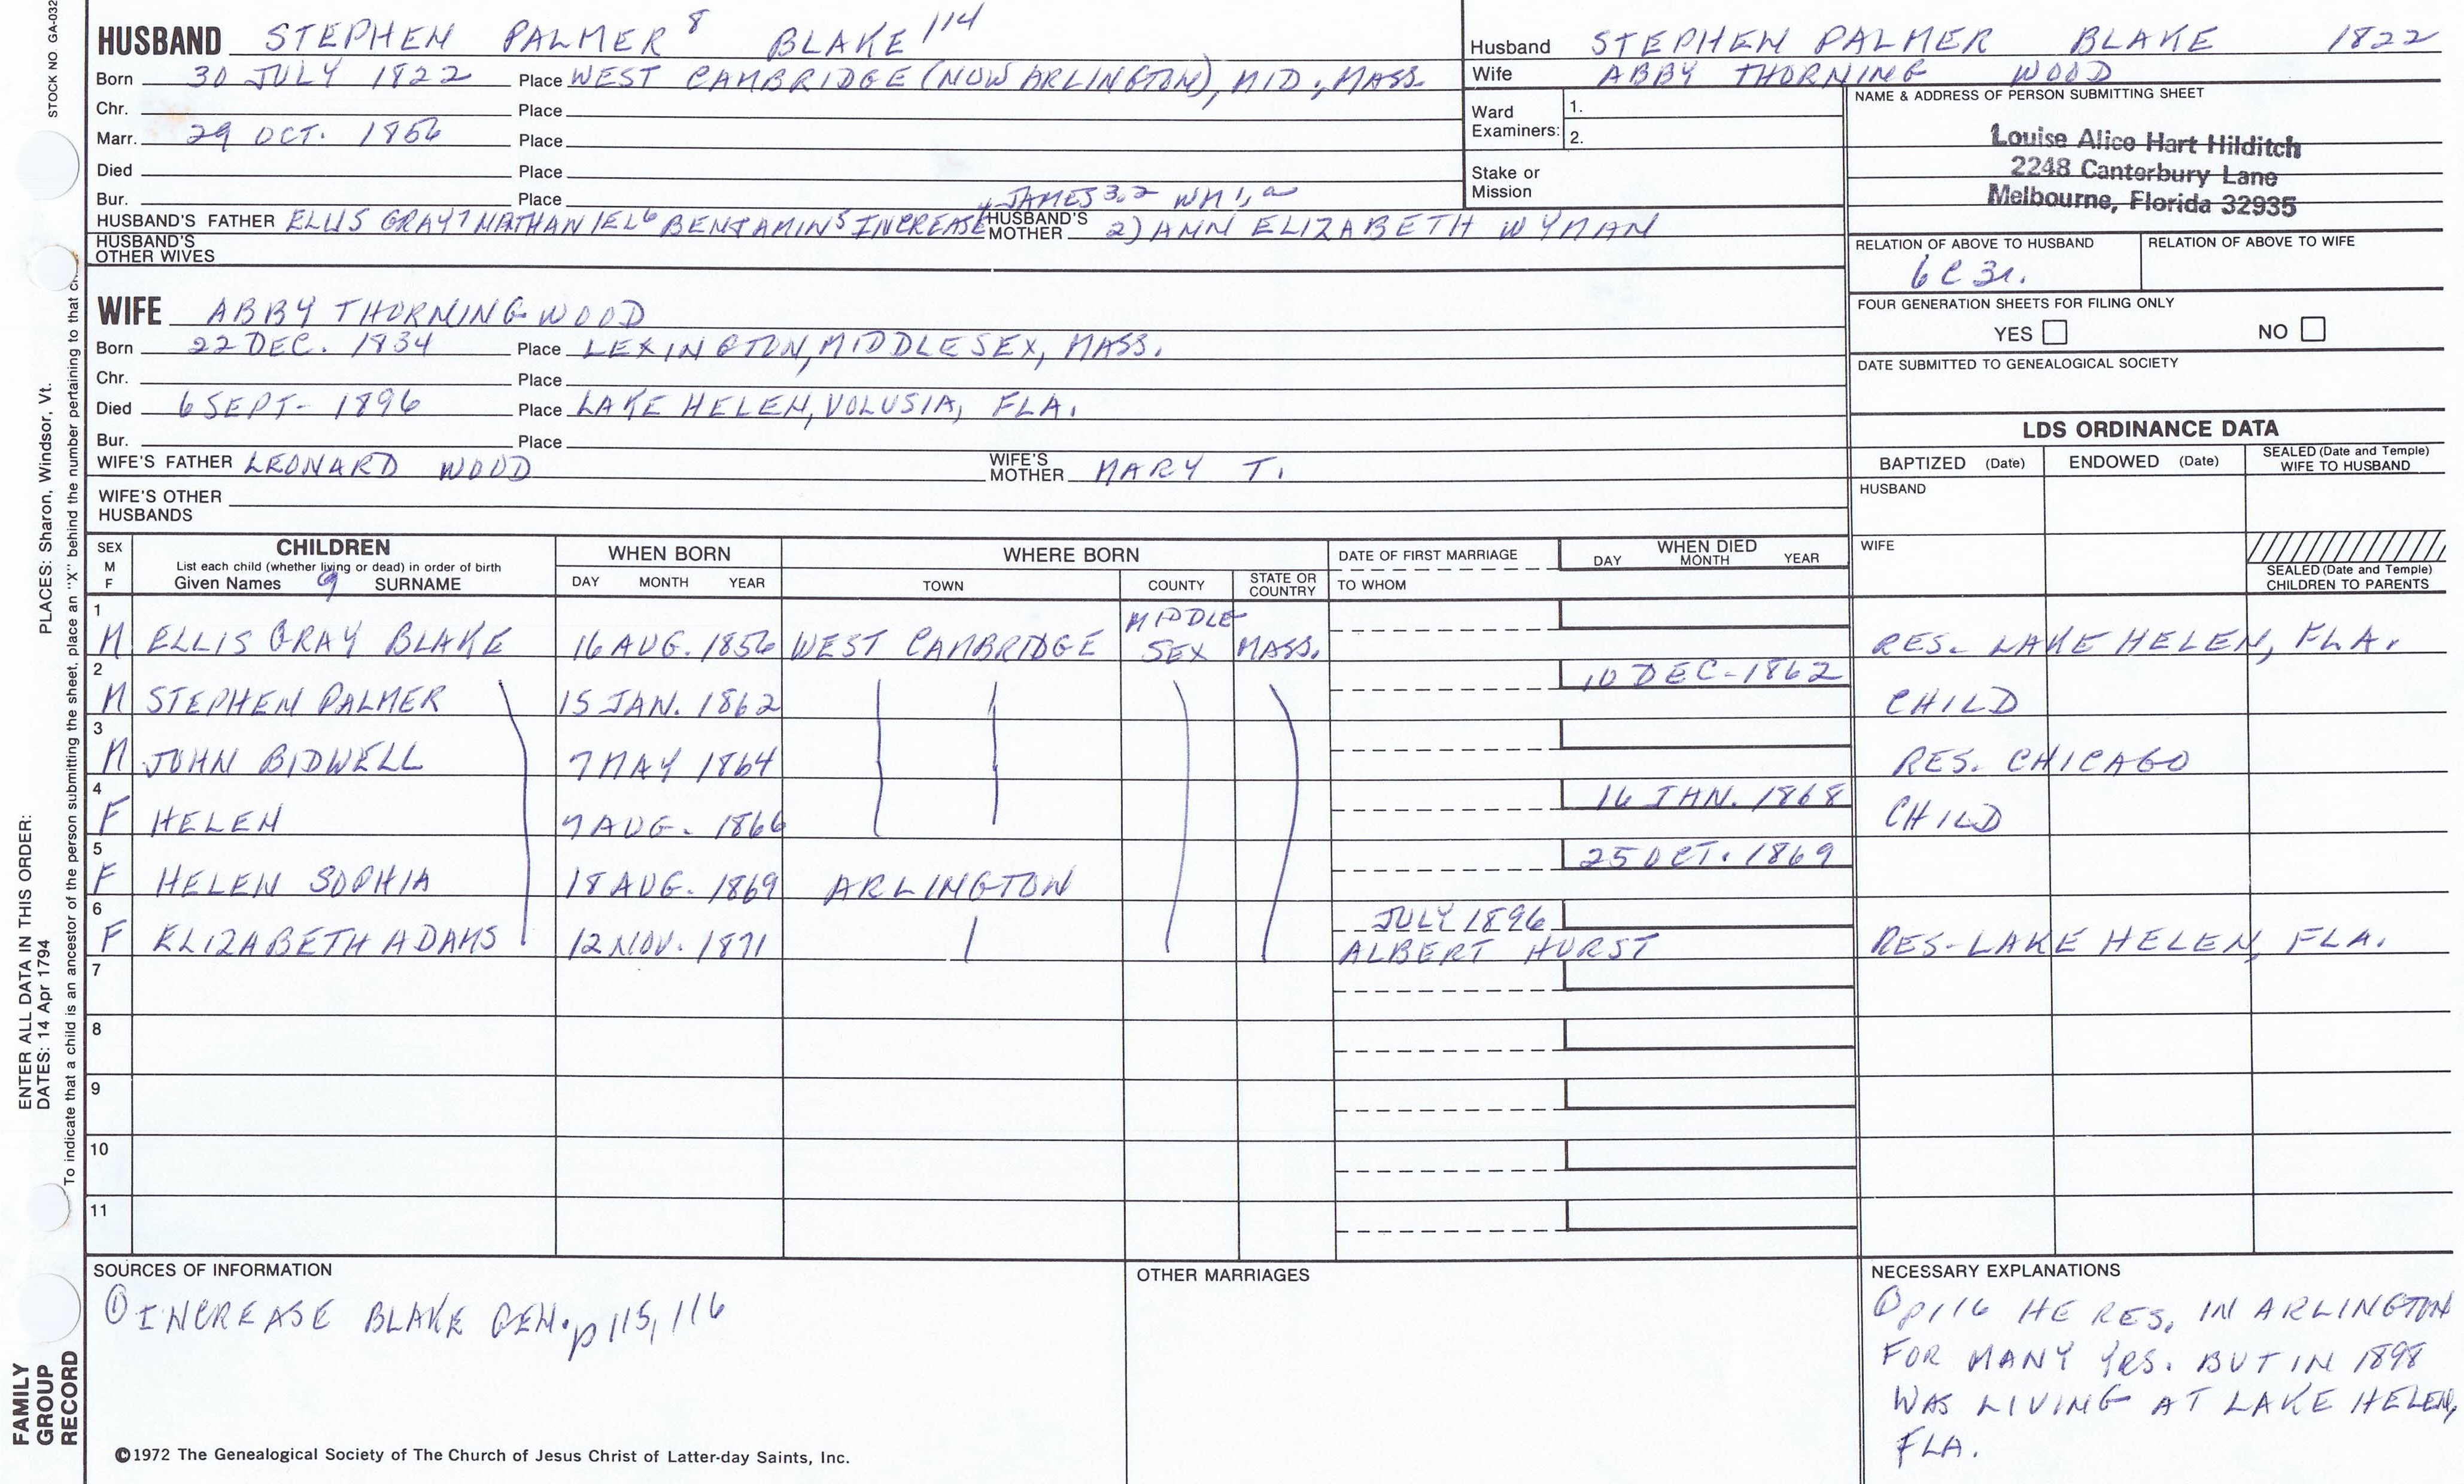 STOCK NO. GA-032
HUSBAND STEPHEN PALMER 8 BLAKE 114
Born 30 JULY 1822 Place WEST CAMBRIDGE (NOW ARLINGTON), MID., MASS.
Chr. Place
Marr. 29 OCT. 1856 Place
Died Place
Bur. Place
4, JAMES 3,2 WM 1, a
HUSBAND'S FATHER ELLIS GRAY 7 NATHANIEL 6 BENJAMIN 5 INCREASE HUSBAND'S MOTHER 2) ANN ELIZABETH WYMAN
HUSBAND'S OTHER WIVES
Husband STEPHEN PALMER BLAKE 1822
Wife ABBY THORNING WOOD
Ward Examiners: 1.
2.
Stake or Mission
NAME & ADDRESS OF PERSON SUBMITTING SHEET
Louise Alice Hart Hilditch
2248 Canterbury Lane
Melbourne, Florida 32935
RELATION OF ABOVE TO HUSBAND RELATION OF ABOVE TO WIFE
6 C 3r.
FOUR GENERATION SHEETS FOR FILING ONLY
YES NO
DATE SUBMITTED TO GENEALOGICAL SOCIETY
WIFE ABBY THORNING WOOD
Born 22 DEC. 1834 Place LEXINGTON, MIDDLESEX, MASS.
Chr. Place
Died 6 SEPT- 1896 Place LAKE HELEN, VOLUSIA, FLA.
Bur. Place
WIFE'S FATHER LEONARD WOOD WIFE'S MOTHER MARY T.
WIFE'S OTHER HUSBANDS
LDS ORDINANCE DATA
BAPTIZED (Date) ENDOWED (Date) SEALED (Date and Temple) WIFE TO HUSBAND
HUSBAND
WIFE
SEALED (Date and Temple) CHILDREN TO PARENTS
SEX M F CHILDREN WHEN BORN WHERE BORN DATE OF FIRST MARRIAGE WHEN DIED
List each child (whether living or dead) in order of birth
Given Names 9 SURNAME DAY MONTH YEAR TOWN COUNTY STATE OR COUNTRY TO WHOM DAY MONTH YEAR
1 M ELLIS GRAY BLAKE 16 AUG. 1856 WEST CAMBRIDGE MIDDLE SEX MASS. RES. LAKE HELEN, FLA.
2 M STEPHEN PALMER 15 JAN. 1862 10 DEC-1862 CHILD
3 M JOHN BIDWELL 7 MAY 1864 RES. CHICAGO
4 F HELEN 7 AUG. 1866 16 JAN. 1868 CHILD
5 F HELEN SOPHIA 18 AUG. 1869 ARLINGTON 25 OCT. 1869
6 F ELIZABETH ADAMS 12 NOV. 1871 JULY 1896 ALBERT HURST RES- LAKE HELEN, FLA.
7
8
9
10
11
SOURCES OF INFORMATION
① INCREASE BLAKE GEN. p 115, 116
OTHER MARRIAGES
NECESSARY EXPLANATIONS
① p 116 HE RES. IN ARLINGTON
FOR MANY YRS. BUT IN 1898
WAS LIVING AT LAKE HELEN,
FLA.
©1972 The Genealogical Society of The Church of Jesus Christ of Latter-day Saints, Inc.
FAMILY GROUP RECORD
ENTER ALL DATA IN THIS ORDER:
DATES: 14 Apr 1794
PLACES: Sharon, Windsor, Vt.
To indicate that a child is an ancestor of the person submitting the sheet, place an "X" behind the number pertaining to that